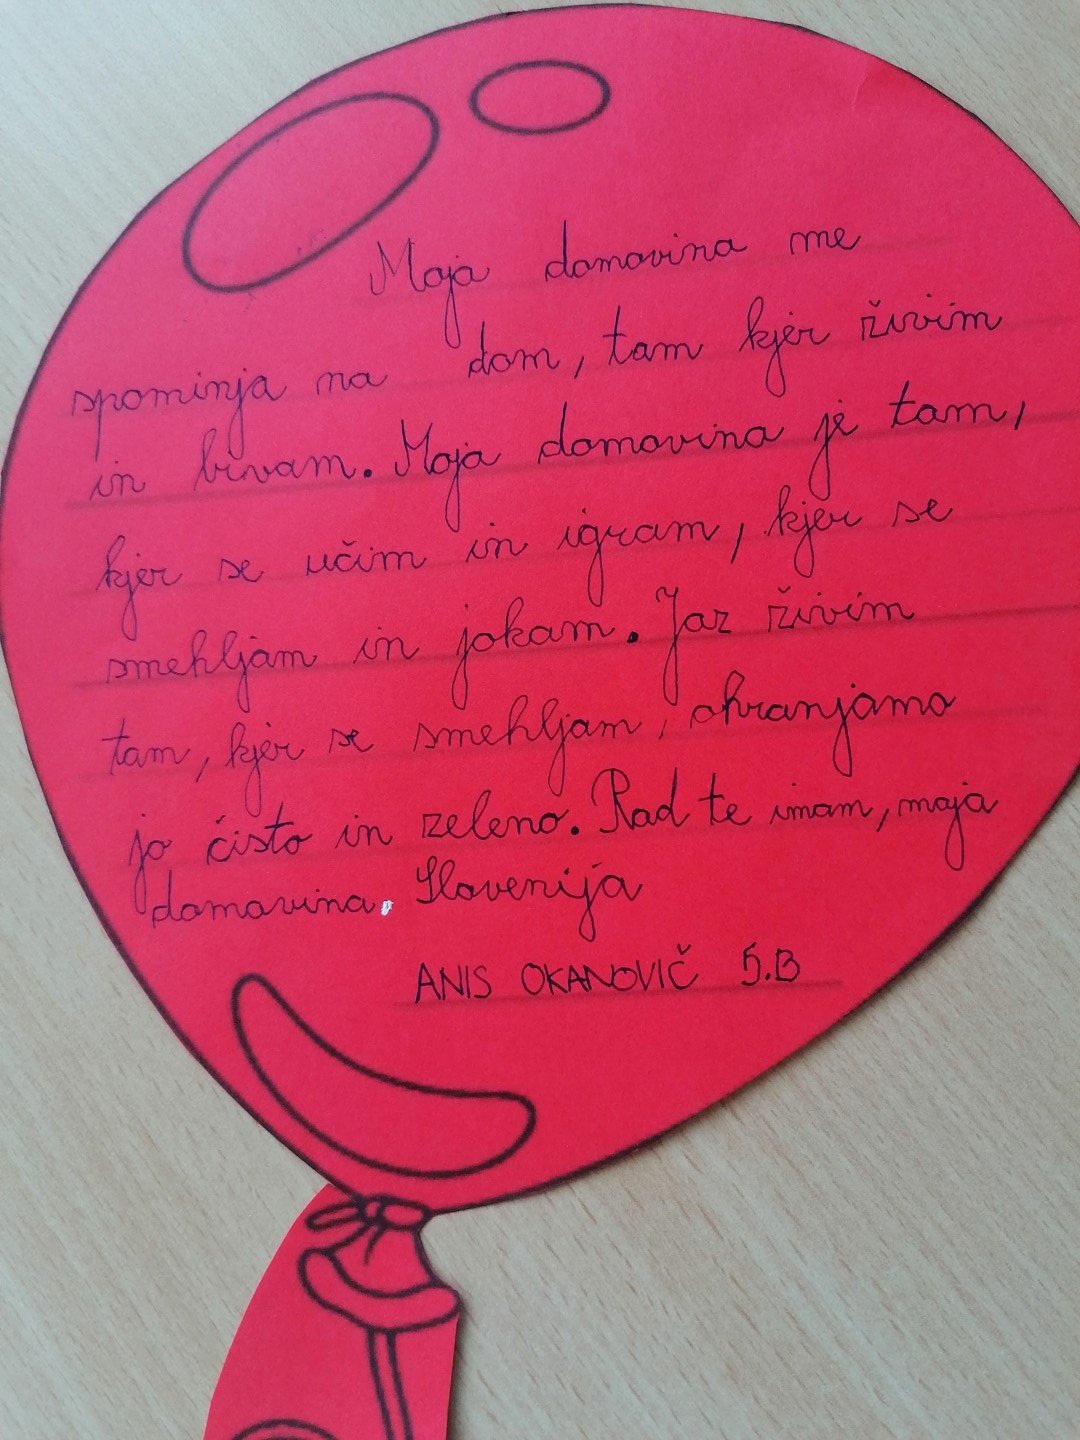 Moja domovina me
spominja na dom, tam kjer živim
in bivam. Moja domovina je tam,
kjer se učim in igram, kjer se
smehljam in jokam. Jaz živim
tam, kjer se smehljam, ohranjamo
jo čisto in zeleno. Rad te imam, moja
domovina. Slovenija
ANIS OKANOVIČ 5.B